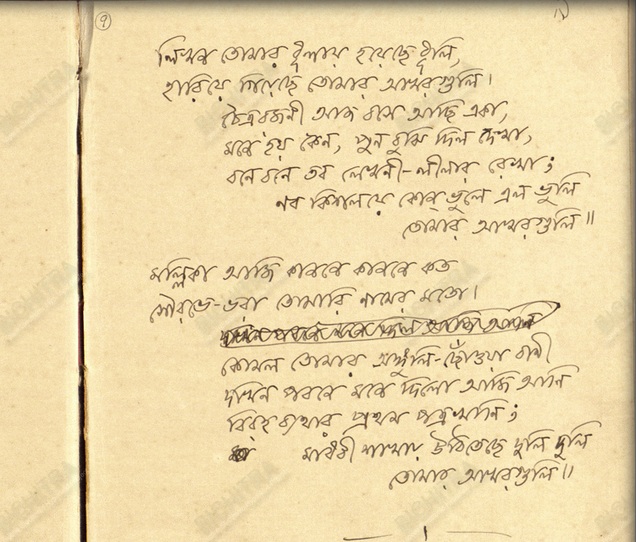 ৭
লিখন তোমার ধুলায় হয়েছে ধূলি,
হারিয়ে গিয়েছে তোমার আখরগুলি।
চৈত্ররজনী আজ বসে আছি একা,
মনে হয় কেন, পুন বুঝি দিল দেখা,
বনে বনে তব লেখনী-লীলার রেখা;
নব কিশলয়ে কোন্ ভুলে এল ভুলি
তোমার আখরগুলি॥
মল্লিকা আজি কাননে কাননে কত
সৌরভে-ভরা তোমারি নামের মতো।
কোমল তোমার অঙ্গুলি-ছোঁওয়া বাণী
দখিন পবনে মনে দিলো আজি আনি
বিরহ ব্যথার প্রথম পত্রখানি;
মাধবী শাখায় উঠিতেছে দুলি দুলি
তোমার আখরগুলি॥